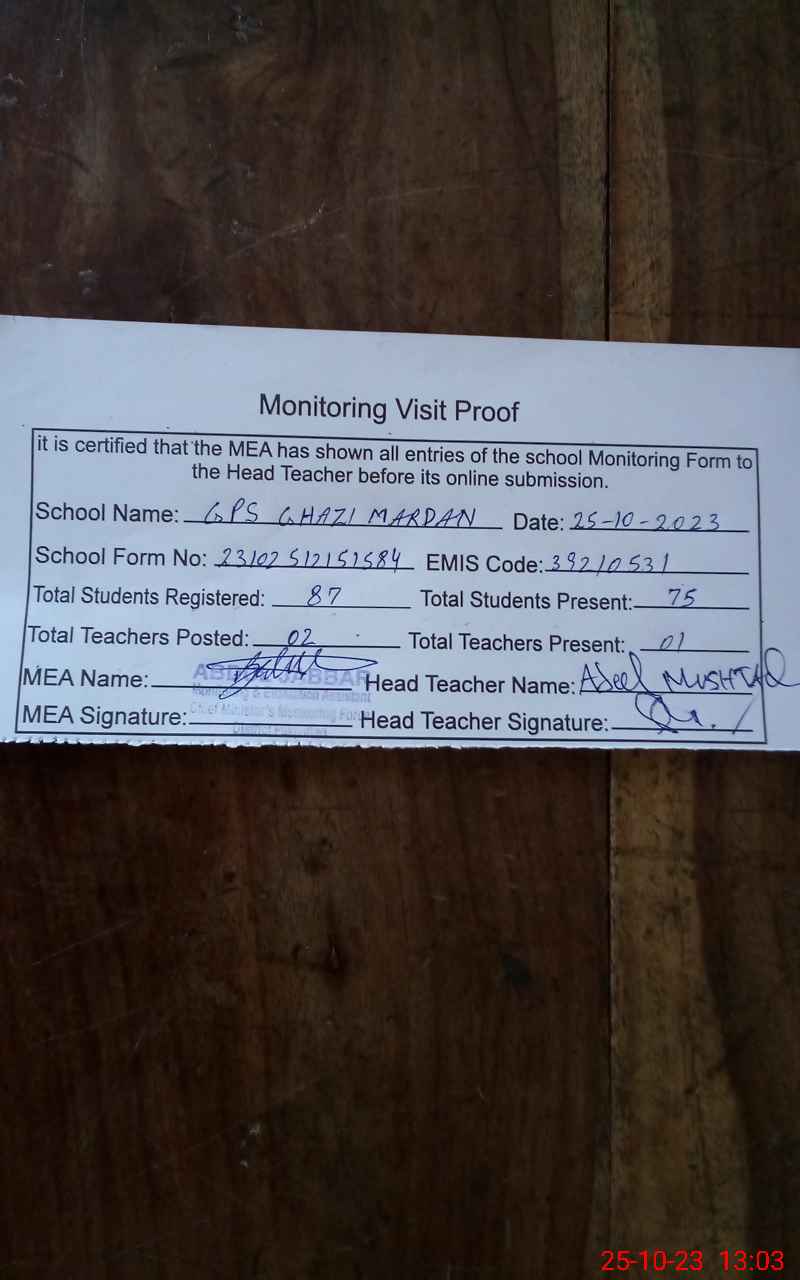 Monitoring Visit Proof
it is certified that the MEA has shown all entries of the school Monitoring Form to
the Head Teacher before its online submission.
School Name: GPS GHAZI MARDAN Date: 25-10-2023
School Form No: 23102512151584 EMIS Code: 39210531
Total Students Registered: 87 Total Students Present: 75
Total Teachers Posted: 02 Total Teachers Present: 01
MEA Name: JABBAR Head Teacher Name: MUSHTAQ
Monitoring & Evaluation Assistant
MEA Signature: Chief Minister's Monitoring Head Teacher Signature:
District
25-10-23 13:03